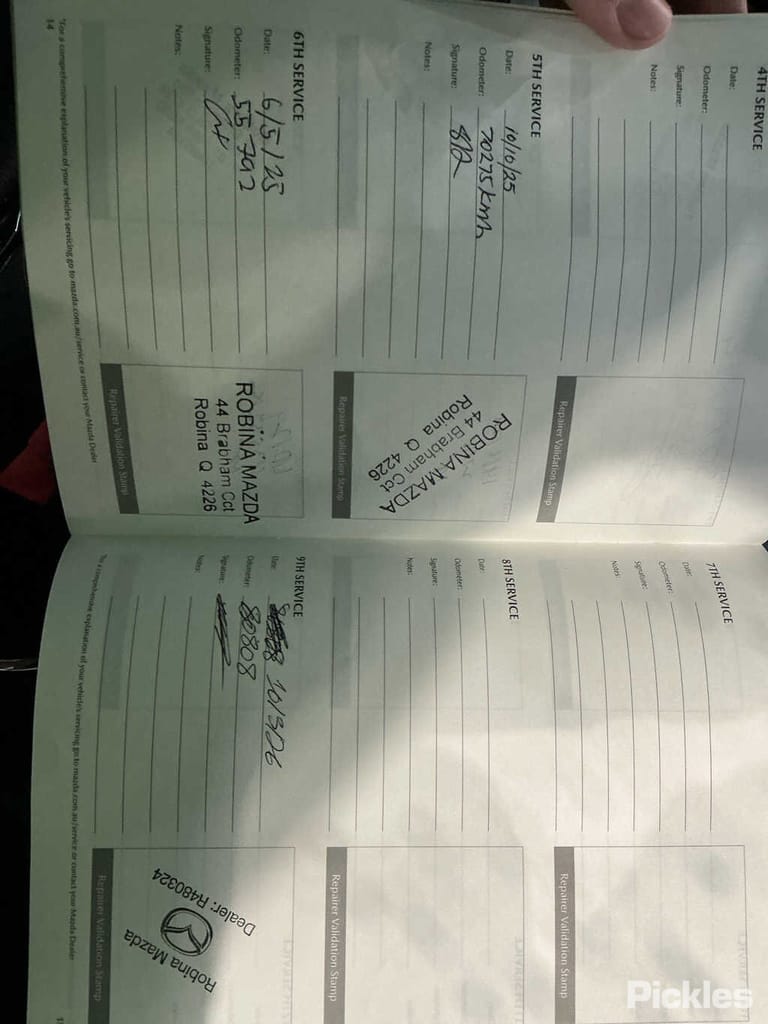 4TH SERVICE
Date:
Odometer:
Signature:
Notes:
Repairer Validation Stamp
5TH SERVICE
Date: 10/10/25
Odometer: 70275kmh
Signature:
Notes:
ROBINA MAZDA
44 Brabham Cct
Robina Q 4226
Repairer Validation Stamp
6TH SERVICE
Date: 6/5/25
Odometer: 55 792
Signature:
Notes:
ROBINA MAZDA
44 Brabham Cct
Robina Q 4226
Repairer Validation Stamp
*For a comprehensive explanation of your vehicle's servicing go to mazda.com.au/service or contact your Mazda Dealer
14
7TH SERVICE
Date:
Odometer:
Signature:
Notes:
Repairer Validation Stamp
8TH SERVICE
Date:
Odometer:
Signature:
Notes:
Repairer Validation Stamp
9TH SERVICE
Date: 10/3/26
Odometer: 80808
Signature:
Notes:
Dealer: R480324
Robina Mazda
Repairer Validation Stamp
*For a comprehensive explanation of your vehicle's servicing go to mazda.com.au/service or contact your Mazda Dealer
Pickles